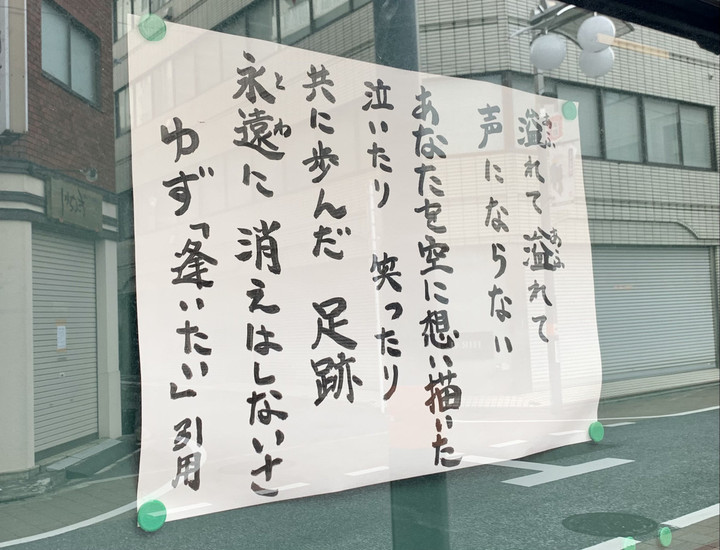 溢れて溢れて
声にならない
あなたを空に想い描いた
泣いたり 笑ったり
共に歩んだ 足跡
永遠に 消えはしないさ
ゆず「逢いたい」引用